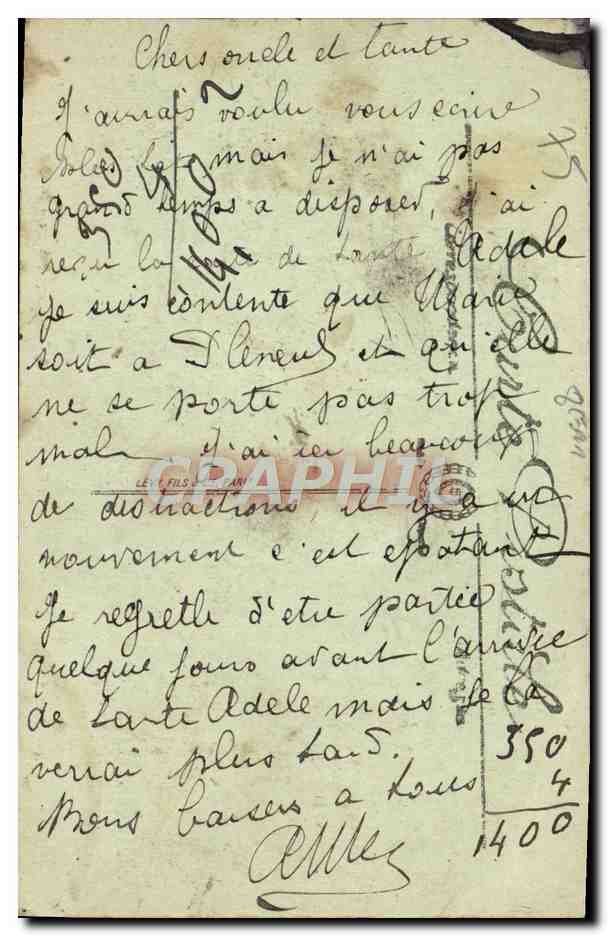 Chers oncle et tante
J'aurais voulu vous ecrire
mais je n'ai pas
grand temps a disposer, j'ai
reçu la de tante Adele
Je suis contente que Marie
soit a Pleneuf et qu'elle
ne se porte pas trop
mal J'ai ici beaucoup
de distractions, il y a un
mouvement c'est epatant
Je regrette d'etre partie
quelque jours avant l'arrivée
de tante Adele mais je la
verrai plus tard.
Bons baisers a tous
350
4
1400
350
4
1400
75
Carte Postale
Correspondance
LEVY FILS PARIS
CPAPHIL